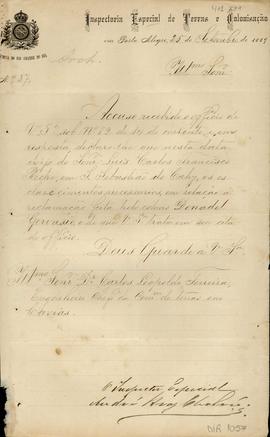 Inspectoria Especial de Terras e Colonisação
em Porto Alegre, 25 de Setembro de 1889
Arch.
Ill.mo Snr.
Accuso recebido o officio de
V. S.a sob N.º 82 de 14 do corrente e em
resposta declaro que nesta data
exijo do Senr. Luis Carlos Francisco
em S. Sebastião do Cahy, os es-
clarecimentos necessarios, em relação á
reclamação feita pelo colono Donadel
Gervasio e de que V. S.a trata em seu cita-
do officio.
Deus Guarde a V. S.a
Ill.mo Senr. Dr. Carlos Leopoldo Ferreira,
Engenheiro Chefe da Com.am de terras em
Caxias.
O Inspector Especial
NR 1057